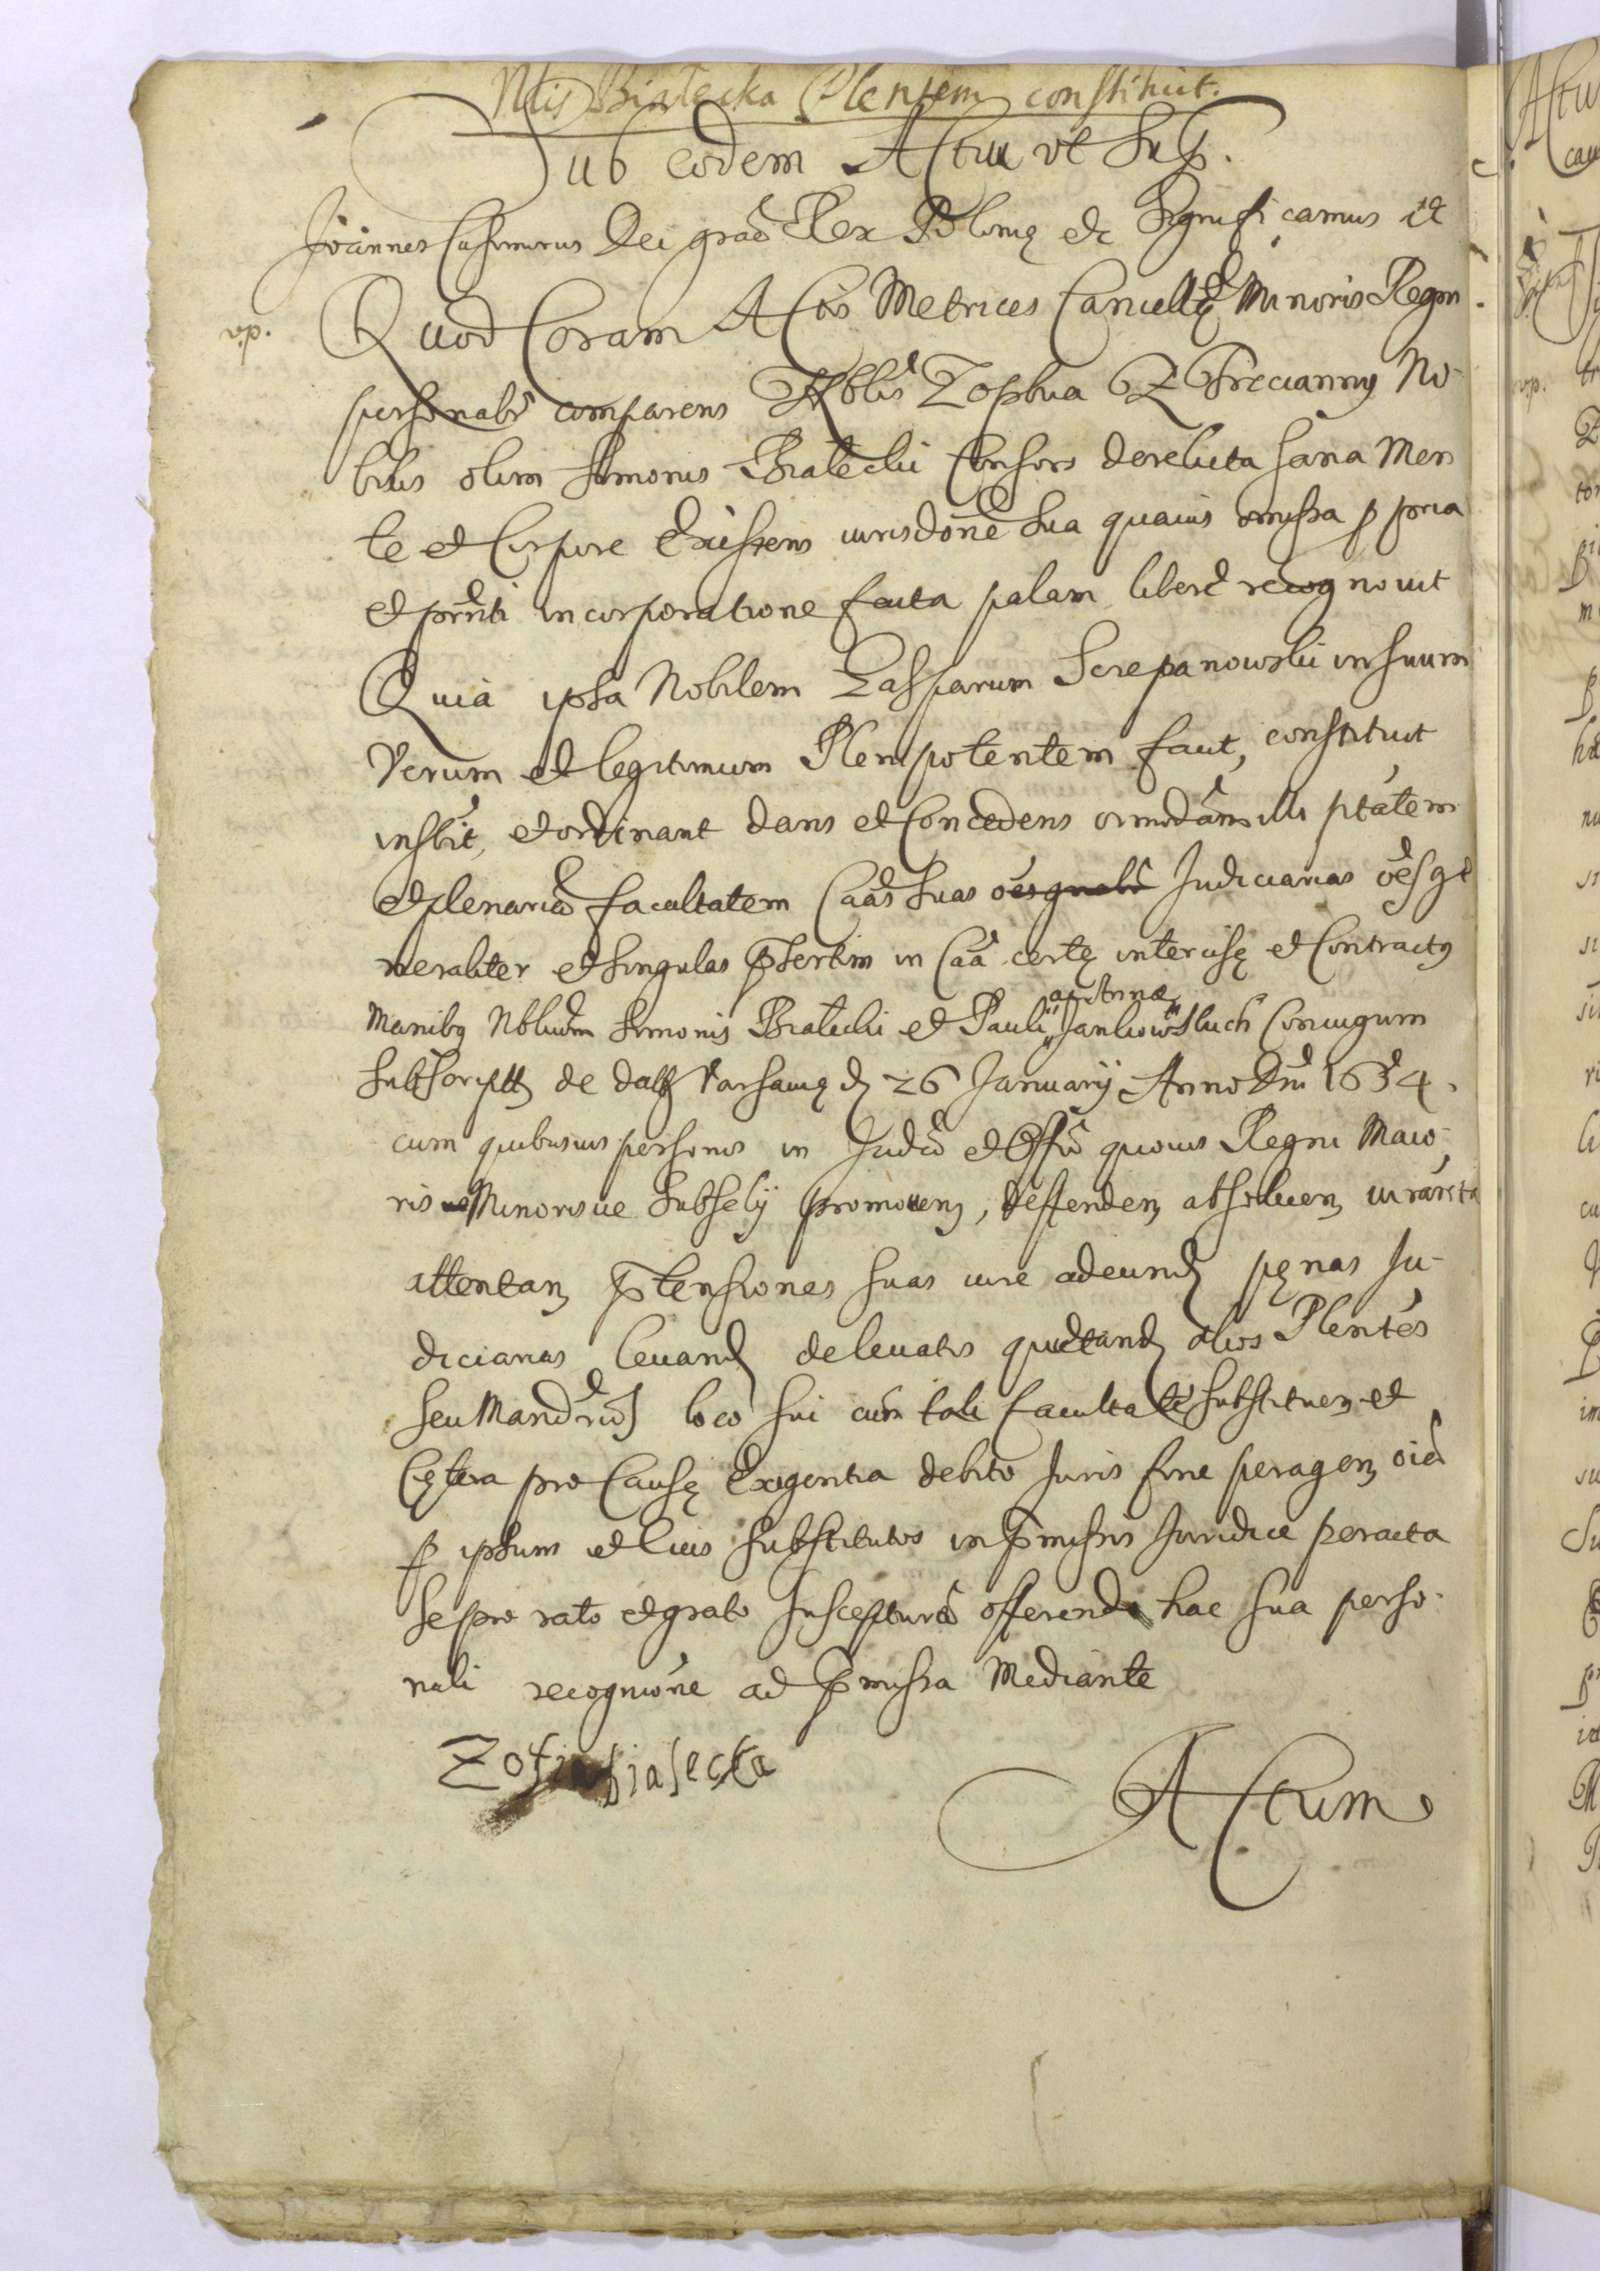 Nlis Białecka Plentem constituit.
Sub eodem Actu ut Sup.
Joannes Casimirus Dei graã Rex Poloniæ etc Significamus etc
vp. Quod Coram Actis Metrices Cancellꝫ Minoris Regni
personalr̃ comparens Nblis Zophia Z
bilis olim Simonis Białecki Consors derelicta sana Men
te et Corpore Existens iurisdõne sua quavis omissa p pria
et prñti incorporatione facta palam libere recognovit
Quia ipsa Nobilem Casparum Sczepanowski in suum
Verum et legitimum Plenipotentem facit, constituit
insbit, et ordinant dans et Concedens omnodam illi ptãtem
et plenariã facultatem Caãs suas oẽs gnalr̃ Judiciarias oẽs ge
neraliter et singulas p̃sertim in Caã certę intercisę et Contractꝯ
Manibꝯ Nbliũm Simonis Białecki et Pauli Jankowskich Coniugum
Subscriptꝫ de datꝫ Varsavię d 26 Januarij Anno Dni 1654.
cum quibusvis personis in Judõ et Offõ quovis Regni Maio
ris Minorisve Subselij promovenꝫ, deffendenꝫ absolvenꝫ
attentanꝫ p̃tensiones suas iure adeundꝫ pęnas Ju-
diciarias levandꝫ de levatis quietandꝫ alios Plentẽs
seu Mandriõs loco sui cum tali facultate substituenꝫ et
Cętera pro Causę Exigentia debito Juris fine peragenꝫ oiã
p ipsum et Eius Substitutos in p̃missis Juridice peracta
se pro rato et grato suscepturã offerendo hac sua perso-
nali recognõne ad p̃missa Mediante
Zofia białecka
Actum